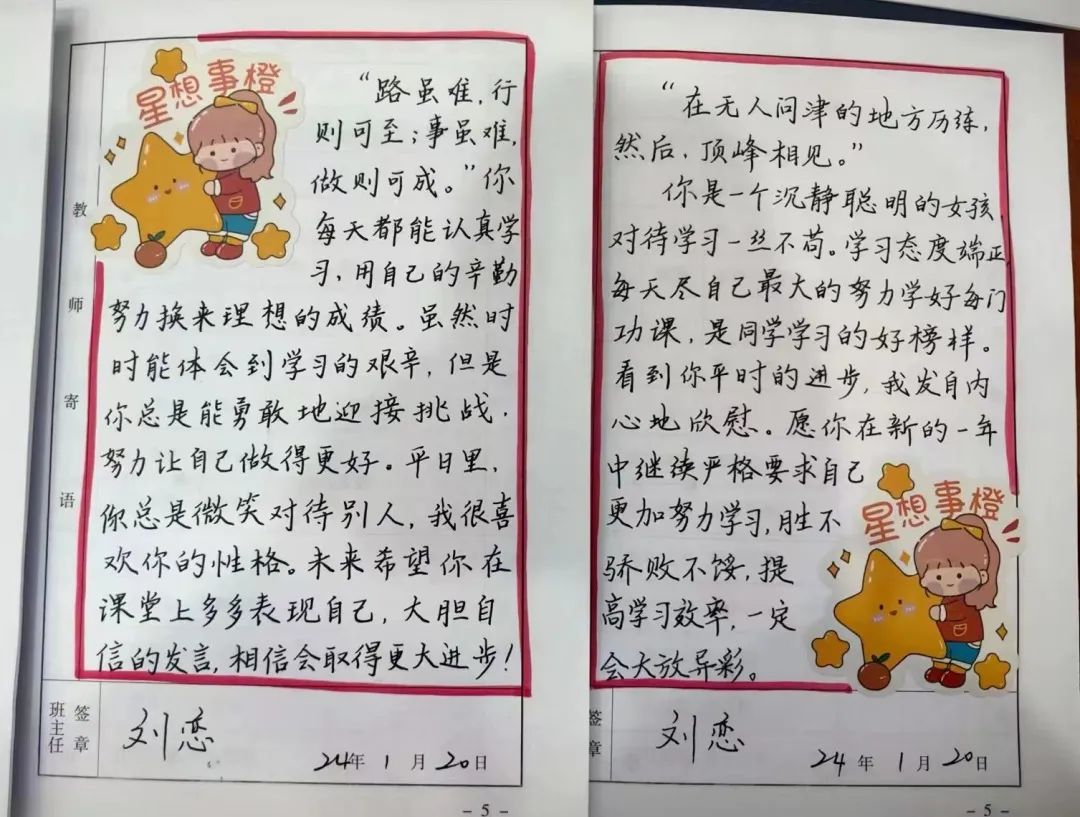 星想事橙
“路虽难，行
则可至；事虽难，
做则可成。”你
每天都能认真学
习，用自己的辛勤
努力换来理想的成绩。虽然时
时能体会到学习的艰辛，但是
你总是能勇敢地迎接挑战，
努力让自己做得更好。平日里，
你总是微笑对待别人，我很喜
欢你的性格。未来希望你在
课堂上多多表现自己，大胆自
信的发言，相信会取得更大进步！
教师寄语
班主任
签章
刘恋
24年1月20日
- 5 -
“在无人问津的地方历练，
然后，顶峰相见。”
你是一个沉静聪明的女孩
对待学习一丝不苟。学习态度端正
每天尽自己最大的努力学好每门
功课，是同学学习的好榜样。
看到你平时的进步，我发自内
心地欣慰。愿你在新的一年
中继续严格要求自己
更加努力学习，胜不
骄败不馁，提
高学习效率，一定
会大放异彩。
星想事橙
签章
刘恋
24年1月20日
- 5 -